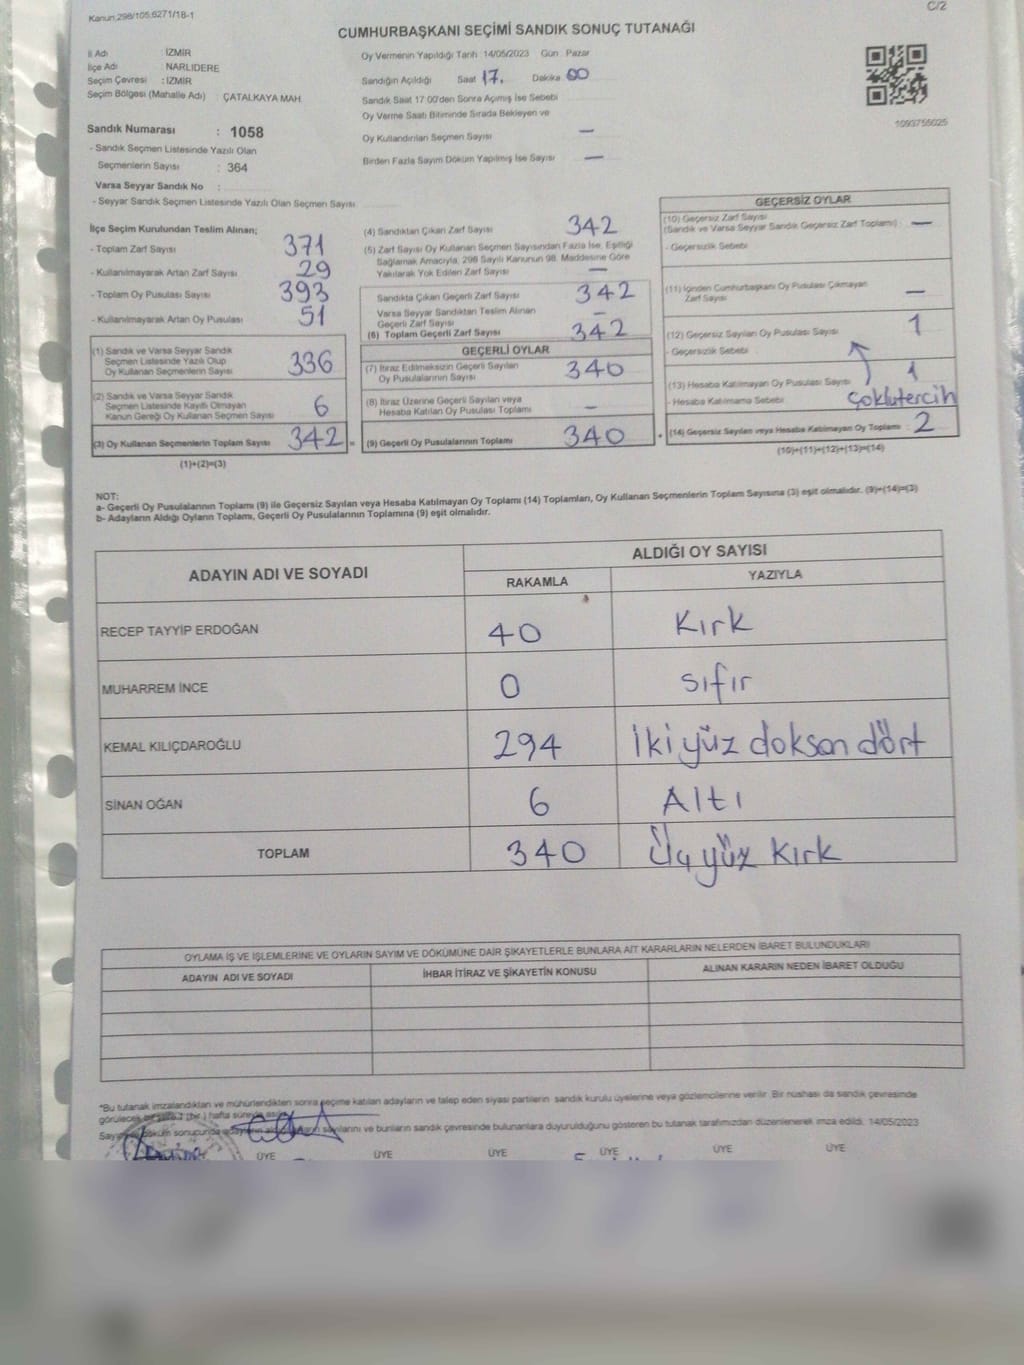 Kanun,298/105,6271/18-1
C/2
CUMHURBAŞKANI SEÇİMİ SANDIK SONUÇ TUTANAĞI
İl Adı : İZMİR
İlçe Adı : NARLIDERE
Seçim Çevresi : İZMİR
Seçim Bölgesi (Mahalle Adı) : ÇATALKAYA MAH.
Oy Vermenin Yapıldığı Tarih 14/05/2023 Gün Pazar
Sandığın Açıldığı Saat 17. Dakika 00
Sandık Saat 17 00'den Sonra Açımış İse Sebebi
Oy Verme Saati Bitiminde Sırada Bekleyen ve
Oy Kullandırılan Seçmen Sayısı —
Birden Fazla Sayım Döküm Yapılmış İse Sayısı —
1093755025
Sandık Numarası : 1058
- Sandık Seçmen Listesinde Yazılı Olan
Seçmenlerin Sayısı : 364
Varsa Seyyar Sandık No :
- Seyyar Sandık Seçmen Listesinde Yazılı Olan Seçmen Sayısı
İlçe Seçim Kurulundan Teslim Alınan;
- Toplam Zarf Sayısı 371
- Kullanılmayarak Artan Zarf Sayısı 29
- Toplam Oy Pusulası Sayısı 393
- Kullanılmayarak Artan Oy Pusulası 51
(1) Sandık ve Varsa Seyyar Sandık
Seçmen Listesinde Yazılı Olup
Oy Kullanan Seçmenlerin Sayısı 336
(2) Sandık ve Varsa Seyyar Sandık
Seçmen Listesinde Kayıtlı Olmayan
Kanun Gereği Oy Kullanan Seçmen Sayısı 6
(3) Oy Kullanan Seçmenlerin Toplam Sayısı 342 =
(1)+(2)=(3)
(4) Sandıktan Çıkan Zarf Sayısı 342
(5) Zarf Sayısı Oy Kullanan Seçmen Sayısından Fazla İse, Eşitliği
Sağlamak Amacıyla, 298 Sayılı Kanunun 98. Maddesine Göre
Yakılarak Yok Edilen Zarf Sayısı —
Sandıkta Çıkan Geçerli Zarf Sayısı 342
Varsa Seyyar Sandıktan Teslim Alınan
Geçerli Zarf Sayısı —
(6) Toplam Geçerli Zarf Sayısı 342
GEÇERLİ OYLAR
(7) İtiraz Edilmeksizin Geçerli Sayılan
Oy Pusulalarının Sayısı 340
(8) İtiraz Üzerine Geçerli Sayılan veya
Hesaba Katılan Oy Pusulası Toplamı -
(9) Geçerli Oy Pusulalarının Toplamı 340 +
GEÇERSİZ OYLAR
(10) Geçersiz Zarf Sayısı
(Sandık ve Varsa Seyyar Sandık Geçersiz Zarf Toplamı) : —
- Geçersizlik Sebebi
(11) İçinden Cumhurbaşkanı Oy Pusulası Çıkmayan
Zarf Sayısı —
(12) Geçersiz Sayılan Oy Pusulası Sayısı 1
- Geçersizlik Sebebi
(13) Hesaba Katılmayan Oy Pusulası Sayısı 1
- Hesaba Katılmama Sebebi Çoklutercih
(14) Geçersiz Sayılan veya Hesaba Katılmayan Oy Toplamı : 2
(10)+(11)+(12)+(13)=(14)
NOT:
a- Geçerli Oy Pusulalarının Toplamı (9) ile Geçersiz Sayılan veya Hesaba Katılmayan Oy Toplamı (14) Toplamları, Oy Kullanan Seçmenlerin Toplam Sayısına (3) eşit olmalıdır. (9)+(14)=(3)
b- Adayların Aldığı Oyların Toplamı, Geçerli Oy Pusulalarının Toplamına (9) eşit olmalıdır.
ADAYIN ADI VE SOYADI
ALDIĞI OY SAYISI
RAKAMLA YAZIYLA
RECEP TAYYİP ERDOĞAN 40 Kırk
MUHARREM İNCE 0 sıfır
KEMAL KILIÇDAROĞLU 294 İkiyüz doksan dört
SİNAN OĞAN 6 Altı
TOPLAM 340 Üçyüz Kırk
OYLAMA İŞ VE İŞLEMLERİNE VE OYLARIN SAYIM VE DÖKÜMÜNE DAİR ŞİKAYETLERLE BUNLARA AİT KARARLARIN NELERDEN İBARET BULUNDUKLARI
ADAYIN ADI VE SOYADI İHBAR İTİRAZ VE ŞİKAYETİN KONUSU ALINAN KARARIN NEDEN İBARET OLDUĞU
*Bu tutanak imzalandıktan ve mühürlendikten sonra seçime katılan adayların ve talep eden siyasi partilerin sandık kurulu üyelerine veya gözlemcilerine verilir. Bir nüshası da sandık çevresinde
görülecek bir yere 1 (bir ) hafta süreyle asılır.
Sayım ve döküm sonucunda adayların aldıkları oyların sayılarını ve bunların sandık çevresinde bulunanlara duyurulduğunu gösteren bu tutanak tarafımızdan düzenlenerek imza edildi. 14/05/2023
ÜYE ÜYE ÜYE ÜYE ÜYE ÜYE